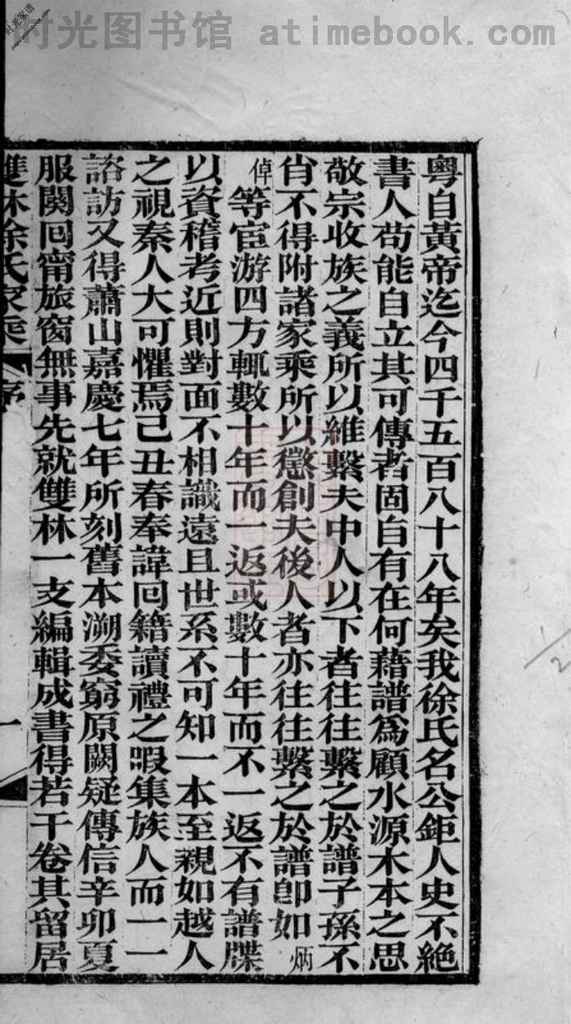 时光图书馆 atimebook.com
粵自黃帝迄今四千五百八十八年矣我徐氏名公鉅人史不絕
書人苟能自立其可傳者固自有在何藉譜爲顧水源木本之思
敬宗收族之義所以維繫夫中人以下者往往繫之於譜子孫不
肖不得附諸家乘所以懲創夫後人者亦往往繫之於譜卽如炳
倬等宦游四方輒數十年而一返或數十年而不一返不有譜牒
以資稽考近則對面不相識遠且世系不可知一本至親如越人
之視秦人大可懼焉己丑春奉諱回籍讀禮之暇集族人而一一
諮訪又得蕭山嘉慶七年所刻舊本溯委窮原闕疑傳信辛卯夏
服闋回甯旅窗無事先就雙林一支編輯成書得若干卷其留居
雙林徐氏家乘 序 一